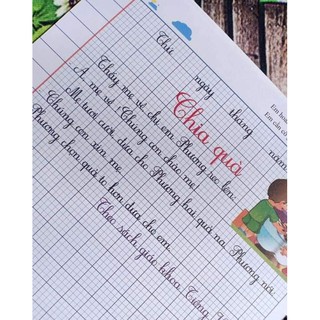 Thứ ngày tháng năm
Chia quà
Thấy mẹ về chị em Phương reo lên:
A mẹ về! Chúng con chào mẹ!
Mẹ tươi cười đưa cho Phương hai quả na. Phương nói:
Chúng con xin mẹ.
Phương chọn quả to hơn đưa cho em.
Theo sách giáo khoa Tiếng